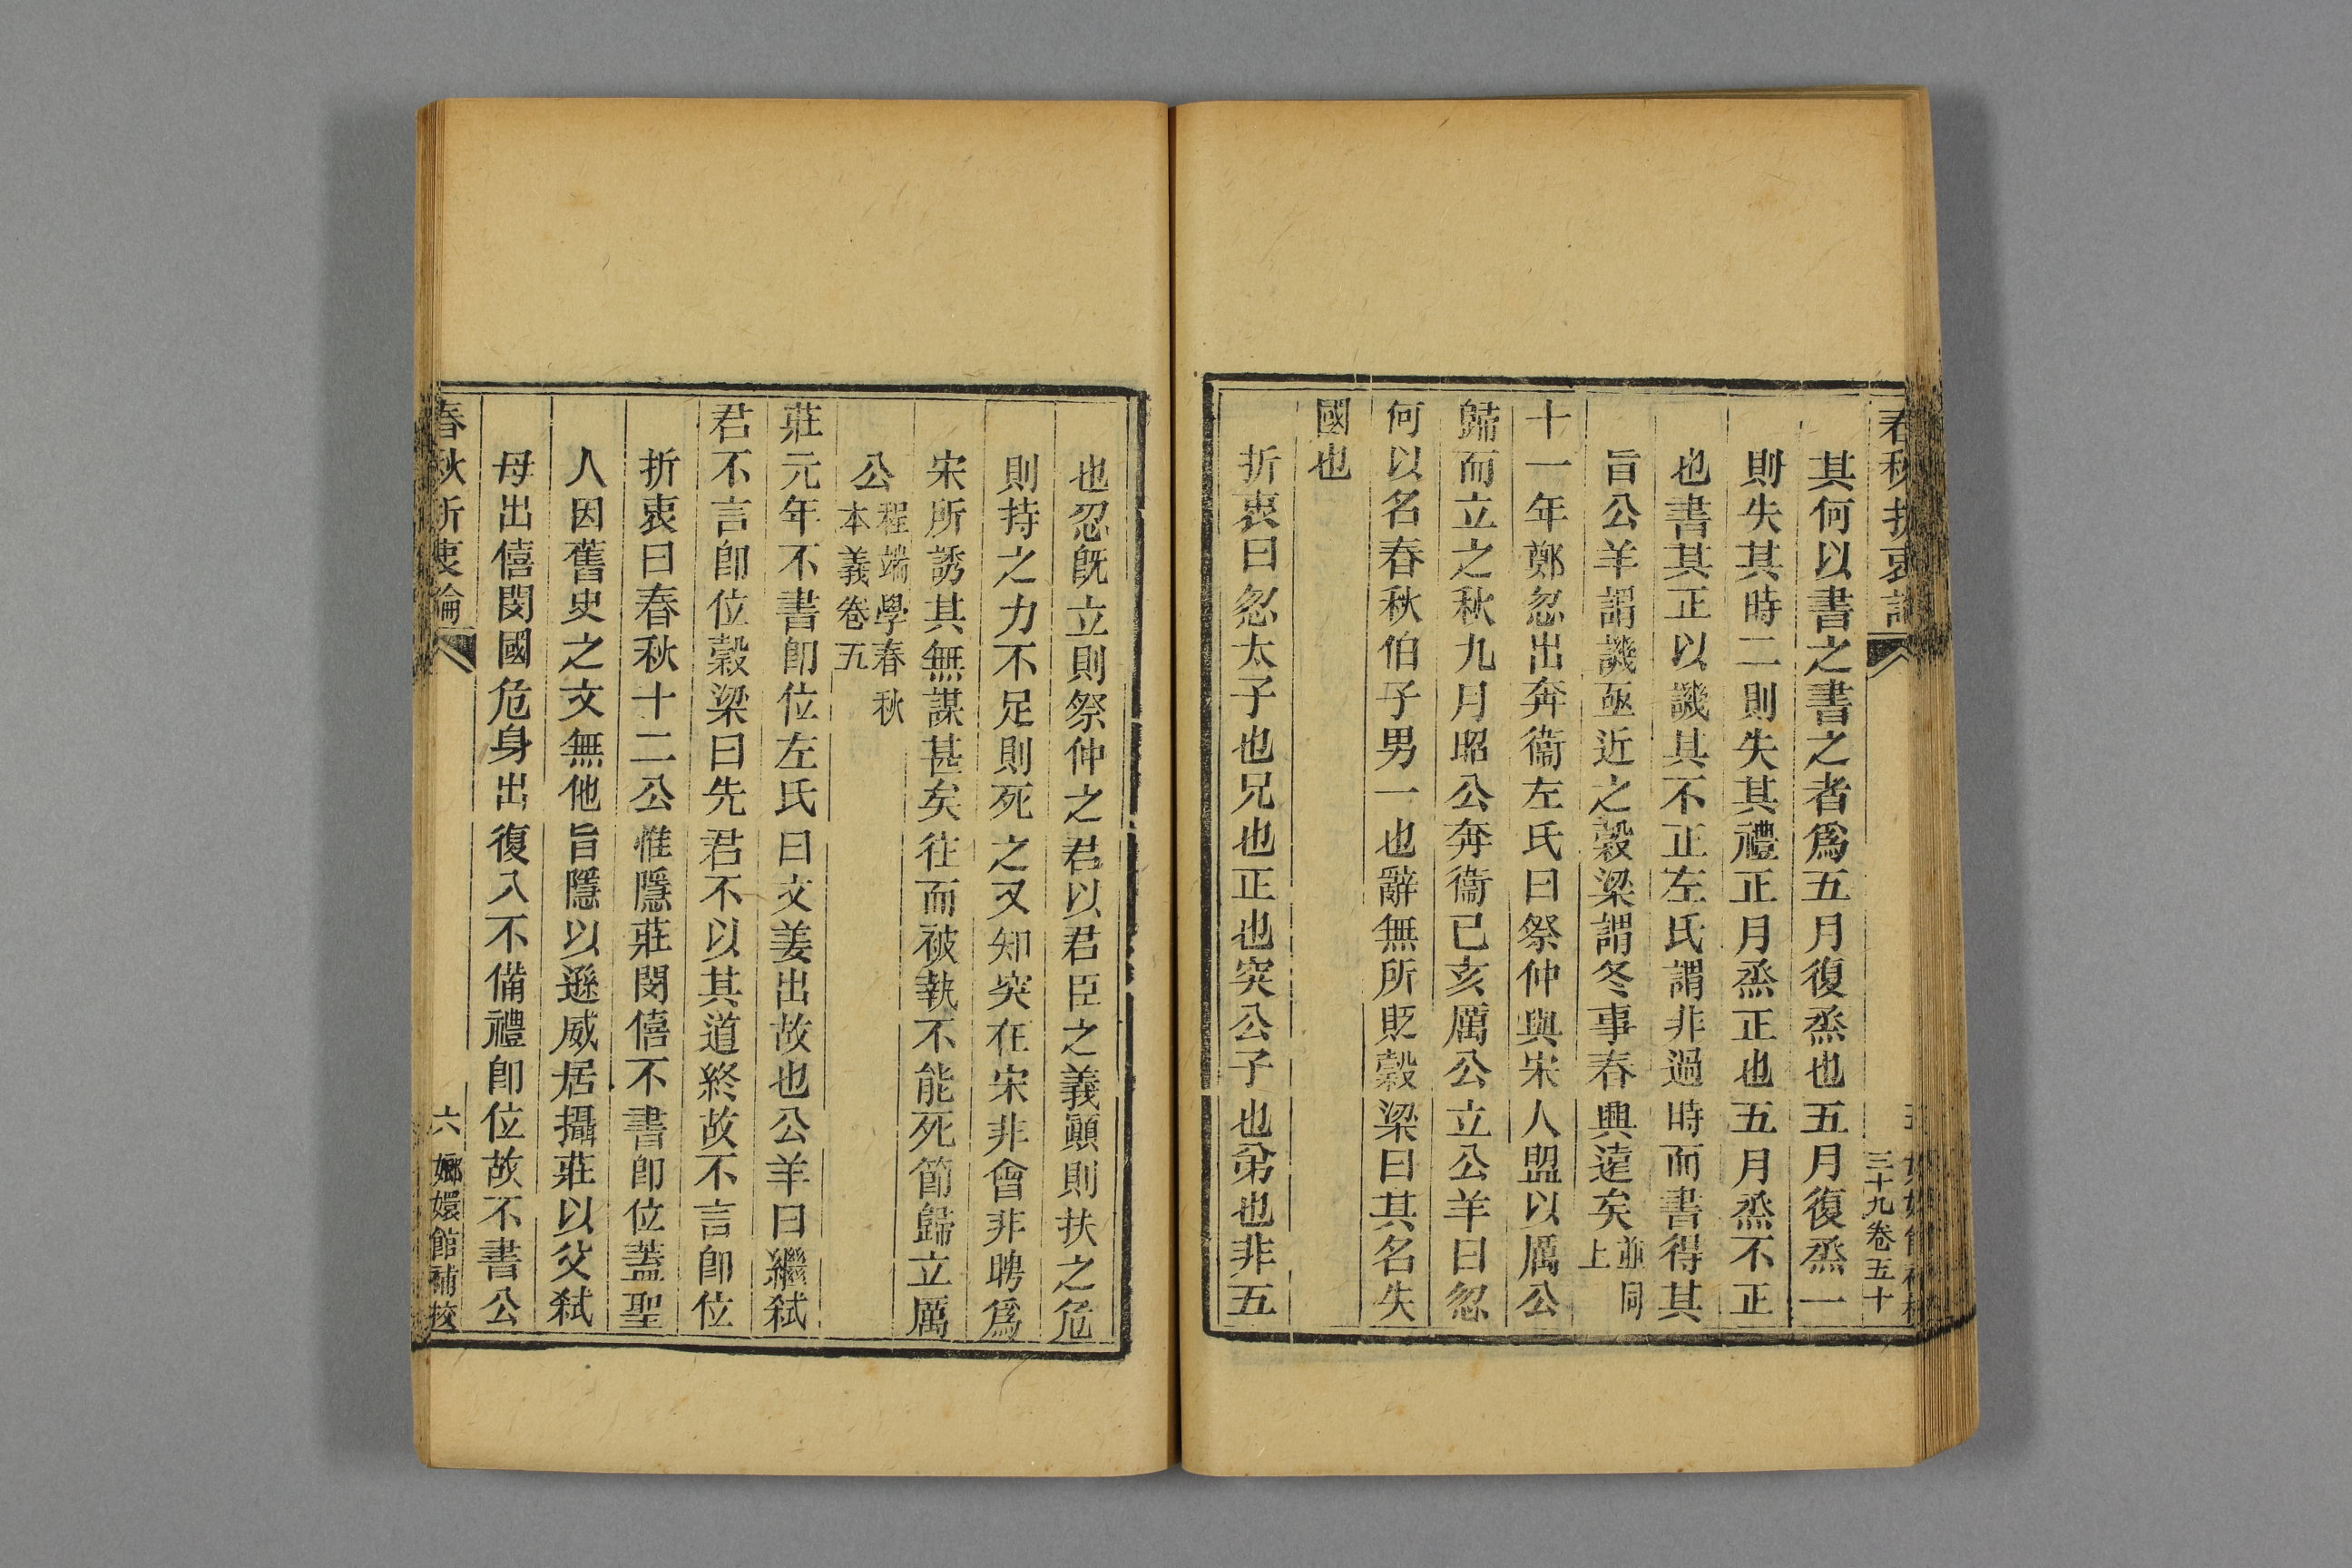 春秋折衷論
三十九卷五十
其何以書之書之者爲五月復烝也五月復烝一
則失其時二則失其禮正月烝正也五月烝不正
也書其正以譏其不正左氏謂非過時而書得其
旨公羊謂譏亟近之穀梁謂冬事春興遠矣並同上
十一年鄭忽出奔衞左氏曰祭仲與宋人盟以厲公
歸而立之秋九月昭公奔衞已亥厲公立公羊曰忽
何以名春秋伯子男一也辭無所貶穀梁曰其名失
國也
折衷曰忽太子也兄也正也突公子也弟也非五
也忍旣立則祭仲之君以君臣之義顚則扶之危
則持之力不足則死之又知突在宋非會非聘爲
宋所誘其無謀甚矣往而被執不能死節歸立厲
公程端學春秋本義卷五
莊元年不書卽位左氏曰文姜出故也公羊曰繼弑
君不言卽位穀梁曰先君不以其道終故不言卽位
折衷曰春秋十二公惟隱莊閔僖不書卽位蓋聖
人因舊史之文無他旨隱以遜威居攝莊以父弑
母出僖閔國危身出復入不備禮卽位故不書公
春秋折衷論
六
嫏嬛館補校